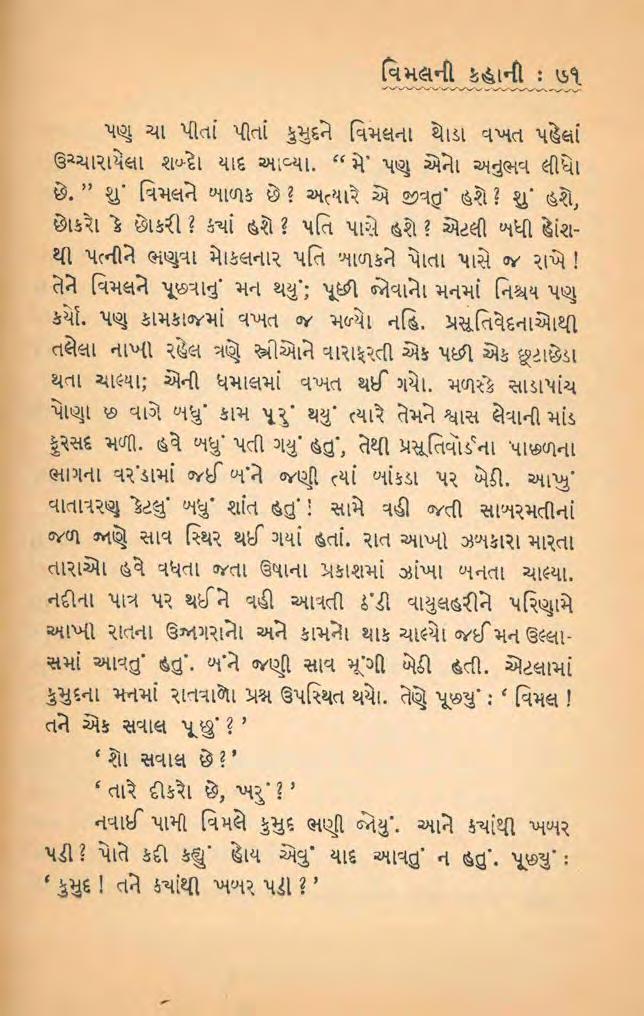 વિમલની કહાની : ૭૧
પણ ચા પીતાં પીતાં કુમુદને વિમલના થોડા વખત પહેલાં
ઉચ્ચારાયેલા શબ્દો યાદ આવ્યા. “મેં પણ એનો અનુભવ લીધો
છે.” શું વિમલને બાળક છે? અત્યારે એ જીવતું હશે? શું હશે,
છોકરો કે છોકરી? ક્યાં હશે? પતિ પાસે હશે? એટલી બધી હોંશ-
થી પત્નીને ભણવા મોકલનાર પતિ બાળકને પોતા પાસે જ રાખે!
તેને વિમલને પૂછવાનું મન થયું; પૂછી જોવાનો મનમાં નિશ્ચય પણ
કર્યો. પણ કામકાજમાં વખત જ મળ્યો નહિ. પ્રસૂતિવેદનાઓથી
તલેલા નાખી રહેલ ત્રણે સ્ત્રીઓને વારાફરતી એક પછી એક છૂટાછેડા
થતા ચાલ્યા; એની ધમાલમાં વખત થઈ ગયો. મળસ્કે સાડાપાંચ
પોણા છ વાગે બધું કામ પૂરું થયું ત્યારે તેમને શ્વાસ લેવાની માંડ
ફુરસદ મળી. હવે બધું પતી ગયું હતું, તેથી પ્રસૂતિવૉર્ડના પાછળના
ભાગના વરંડામાં જઈ બંને જણી ત્યાં બાંકડા પર બેઠી. આખું
વાતાવરણ કેટલું બધું શાંત હતું! સામે વહી જતી સાબરમતીનાં
જળ જાણે સાવ સ્થિર થઈ ગયાં હતાં. રાત આખી ઝબકારા મારતા
તારાઓ હવે વધતા જતા ઉષાના પ્રકાશમાં ઝાંખા બનતા ચાલ્યા.
નદીના પાત્ર પર થઈને વહી આવતી ઠંડી વાયુલહરીને પરિણામે
આખી રાતના ઉજાગરાનો અને કામનો થાક ચાલ્યો જઈ મન ઉલ્લા-
સમાં આવતું હતું. બંને જણી સાવ મૂંગી બેઠી હતી. એટલામાં
કુમુદના મનમાં રાતવાળો પ્રશ્ન ઉપસ્થિત થયો. તેણે પૂછ્યું : ‘વિમલ!
તને એક સવાલ પૂછું?’
‘શો સવાલ છે?’
‘તારે દીકરો છે, ખરું?’
નવાઈ પામી વિમલે કુમુદ ભણી જોયું. આને ક્યાંથી ખબર
પડી? પોતે કદી કહ્યું હોય એવું યાદ આવતું ન હતું. પૂછ્યું :
‘કુમુદ! તને ક્યાંથી ખબર પડી?’